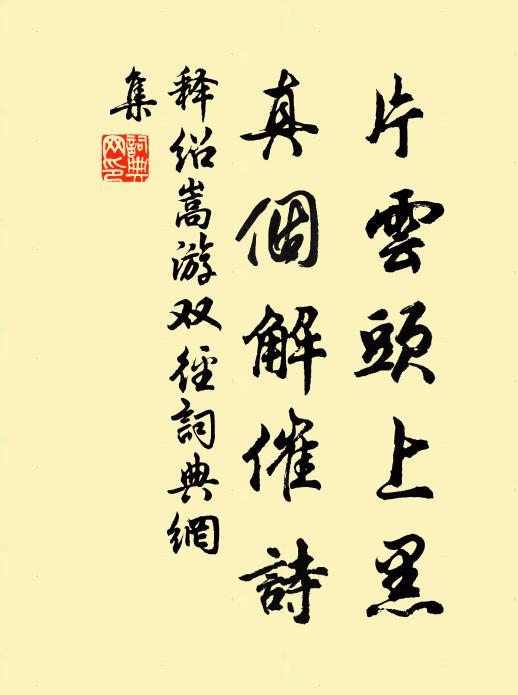 片雲頭上黑
真個解催詩
释绍嵩游双徑詞典網
集
詞典網印